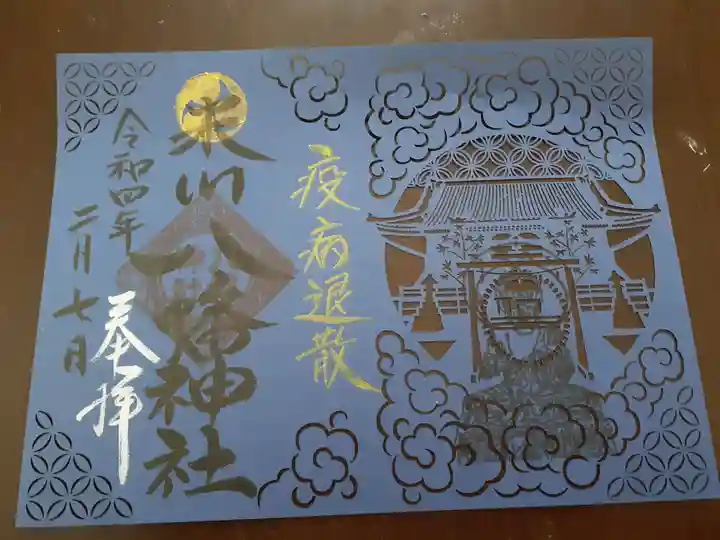 疫病退散
米川八幡神社
令和四年
二月七日
奉拝